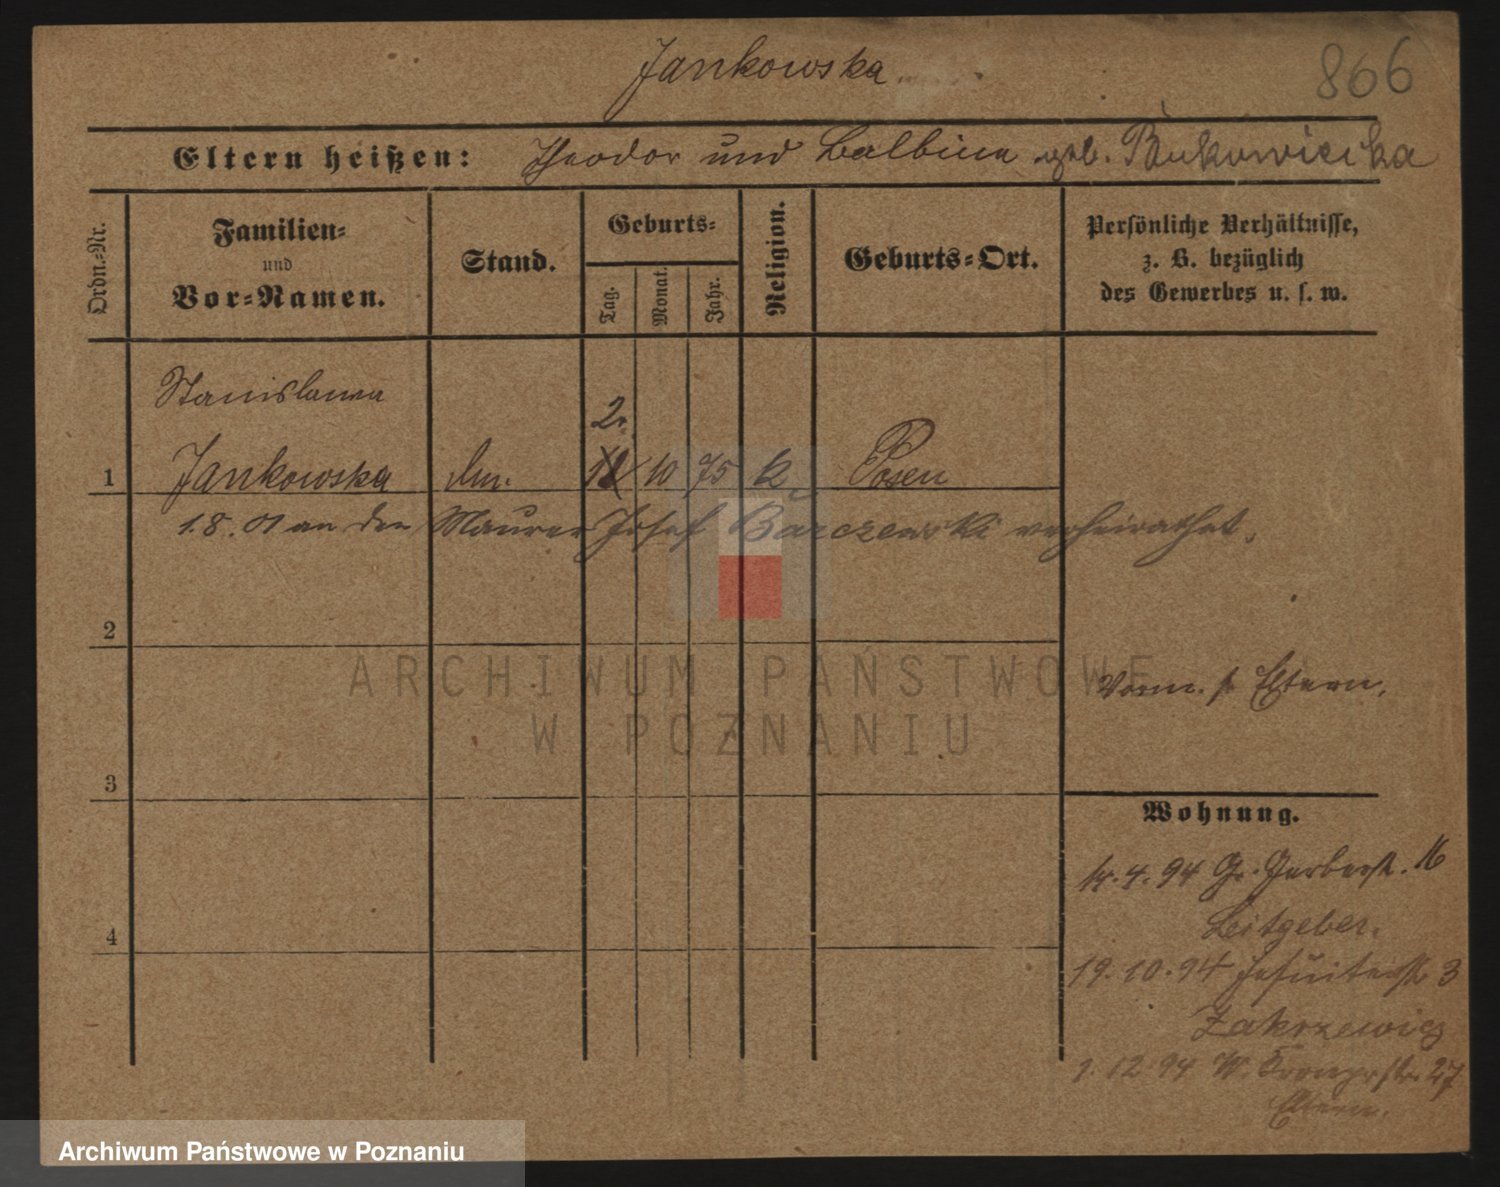 Jankowska
866
Eltern heißen: Theodor und Balbina geb. Bukowiecka
Ordn.-Nr.
Familien-
und
Vor-Namen.
Stand.
Geburts-
Tag.
Monat.
Jahr.
Religion.
Geburts-Ort.
Persönliche Verhältnisse,
z. B. bezüglich
des Gewerbes u. s. w.
Stanislawa
2.
1 Jankowska 10 75 k Posen
1.8.01 an den Maurer Josef Barczewski verheirathet.
2
Vorm. s. Eltern.
3
Wohnung.
14.4.94 Gr. Gerberstr. 16
Leitgeber.
4
19.10.94 Jesuitenstr. 3
Zakrzewicz
1.12.94 W. 27
Eltern.
ARCHIWUM PAŃSTWOWE
W POZNANIU
Archiwum Państwowe w Poznaniu